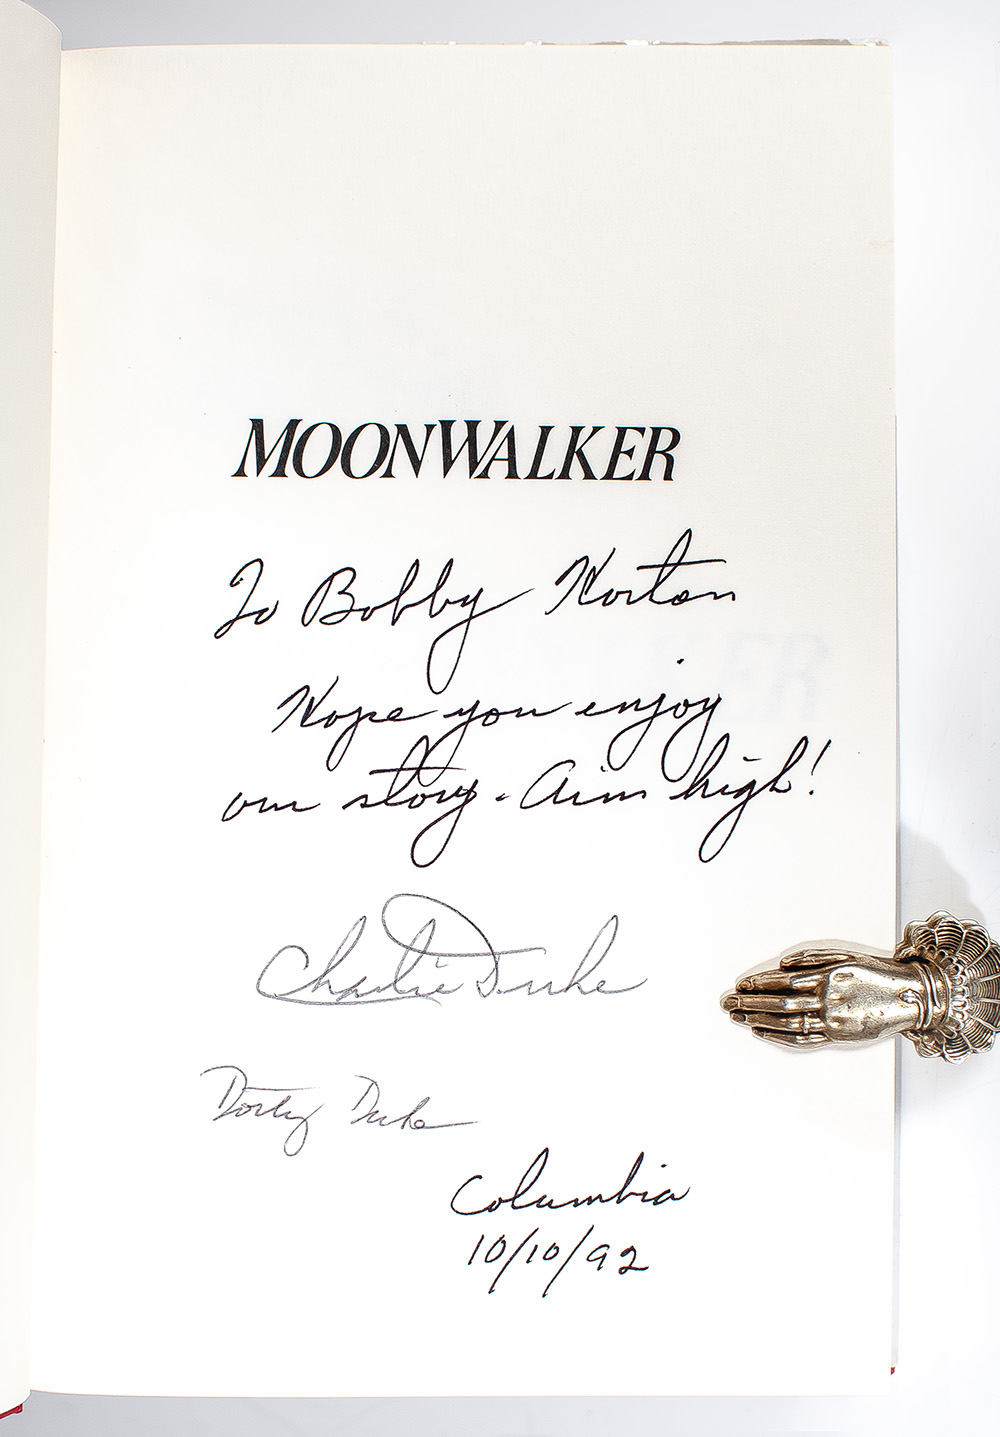 MOONWALKER
To Bobby Horton
Hope you enjoy
our story. Aim high!
Charlie Duke
Dotty Duke
Columbia
10/10/92